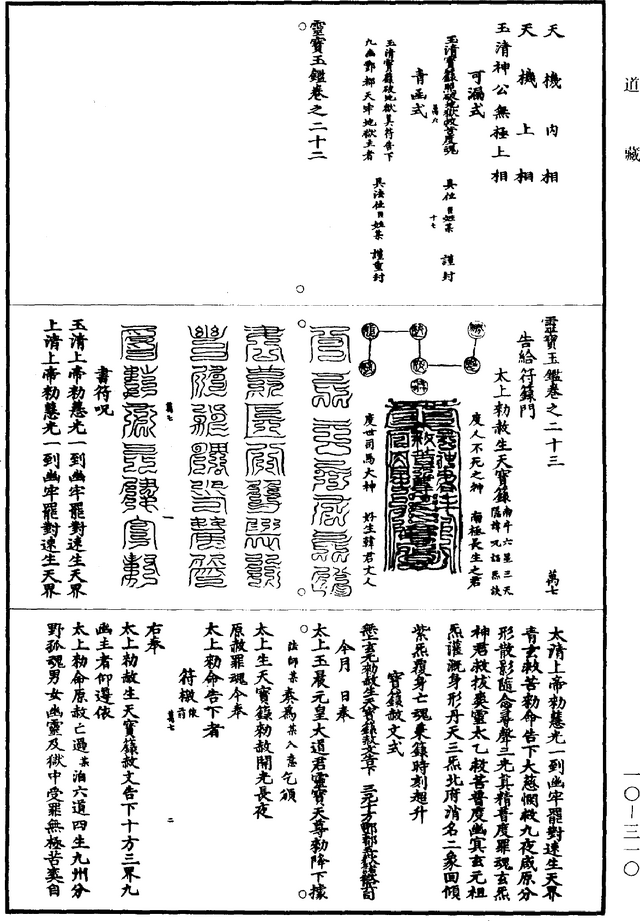 道藏
天機內相
天機上相
玉清神公無極上相
可漏式
玉清寶籙照破地獄救苦度魂　具位姓某　謹封
萬六
十七
青函式
玉清寶籙破地獄真符告下
九幽酆都天牢地獄主者　具法位姓某　謹重封
靈寶玉鑑卷之二十二
靈寶玉鑑卷之二十三
萬七
告給符籙門
太上勑赦生天寶籙
度人不死之神　南極長生之君
度世司馬大神　好生韓君丈人
萬七
一
書符呪
玉清上帝勑慧光一到幽牢罷對速生天界
上清上帝勑慧光一到幽牢罷對速生天界
太清上帝勑慧光一到幽牢罷對速生天界
青玄救苦勑命告下大慈憫救九夜咸原分
形散影隨念尋聲三光真精普度罪魂玄炁
神君救拔爽靈太乙救苦普度幽冥玄元祖
炁灌溉身形丹天三炁北府消名二象回傾
紫炁覆身亡魂乘籙時刻超升
寶籙赦文式
今月　日奉
太上玉晨元皇大道君靈寶天尊勑降下據
法師某奏為某入意乞頒
太上生天寶籙勑赦開光長夜
原赦罪魂今奉
太上勑命告下者
符檄
右奉
太上勑赦生天寶籙赦文告下十方三界九
幽主者仰遵依
太上勑命原赦亡過某洎六道四生九州分
野孤魂男女幽靈及獄中受罪無極苦爽自
萬七
二
一〇—三一〇